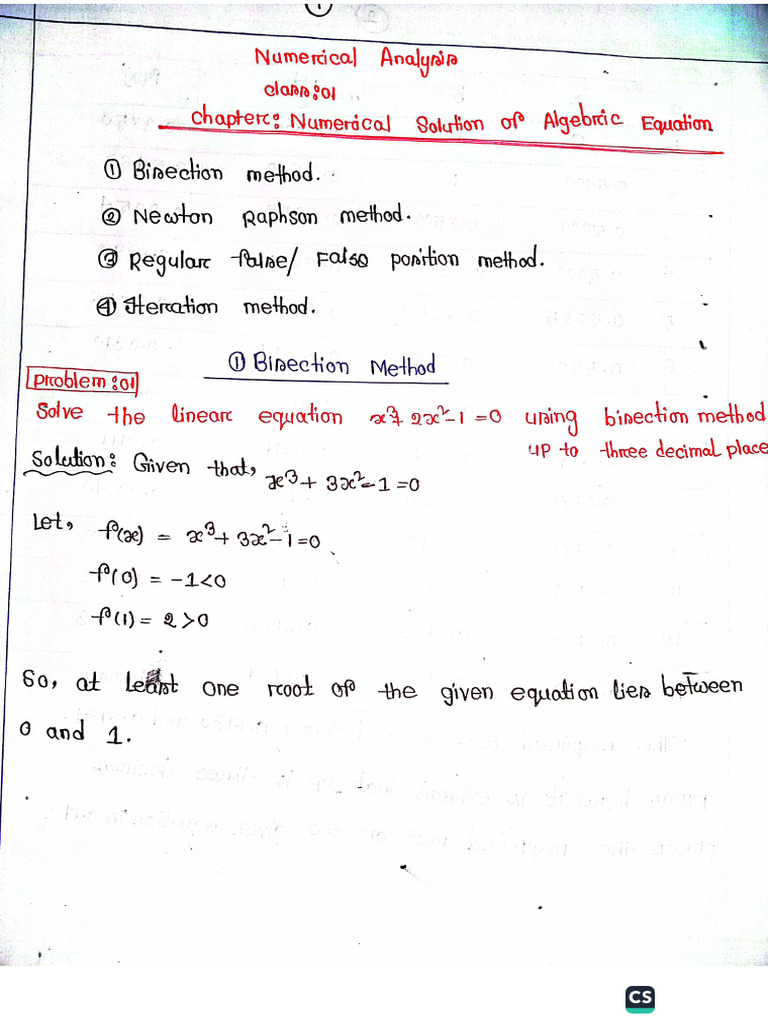 1
Numerical Analysis
class:01
Chapter: Numerical Solution of Algebric Equation
① Bisection method.
② Newton Raphson method.
③ Regular false/ False position method.
④ Iteration method.
① Bisection Method
Problem:01
Solve the linear equation x³+2x²-1=0 using bisection method
up to three decimal place
Solution: Given that, x³+3x²-1=0
Let, f(x) = x³+3x²-1=0
f(0) = -1<0
f(1) = 2>0
So, at least one root of the given equation lies between
0 and 1.
CS